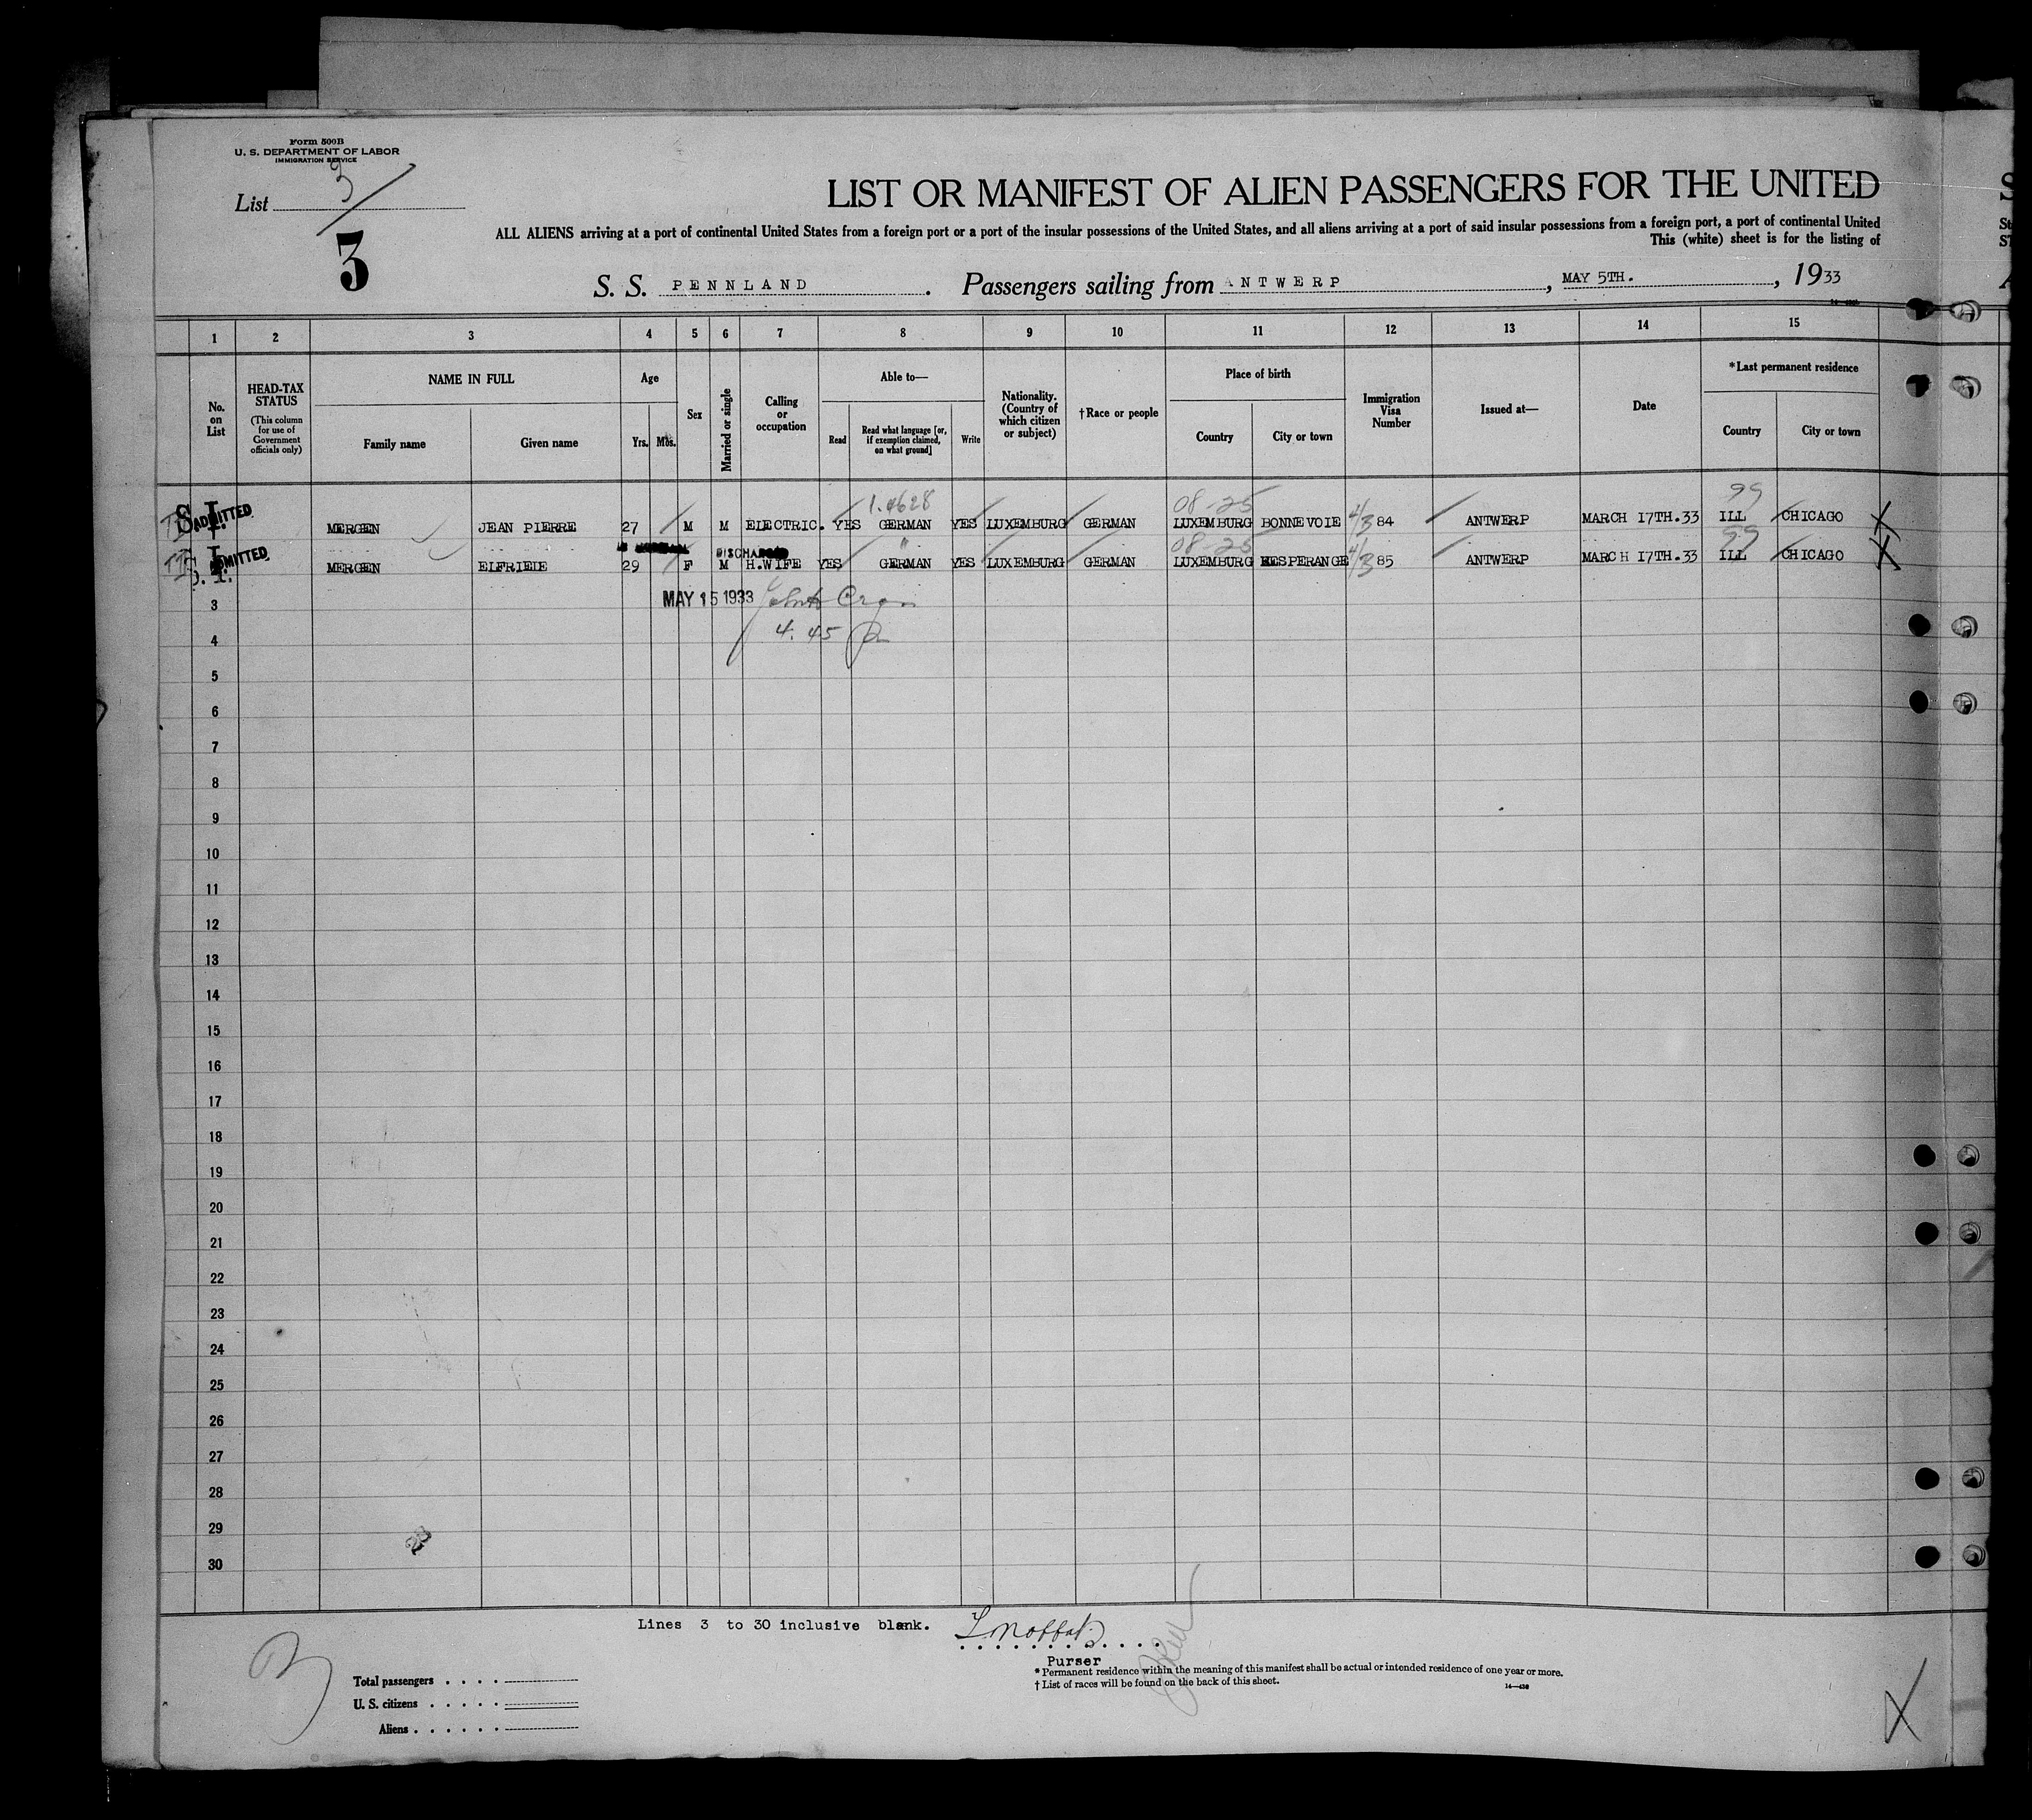 Form 500B
U. S. DEPARTMENT OF LABOR
IMMIGRATION SERVICE
List 3
3
LIST OR MANIFEST OF ALIEN PASSENGERS FOR THE UNITED
ALL ALIENS arriving at a port of continental United States from a foreign port or a port of the insular possessions of the United States, and all aliens arriving at a port of said insular possessions from a foreign port, a port of continental United
This (white) sheet is for the listing of
S. S. PENNLAND. Passengers sailing from ANTWERP, MAY 5TH., 1933
1 2 3 4 5 6 7 8 9 10 11 12 13 14 15
No. on List
HEAD-TAX STATUS
(This column for use of Government officials only)
NAME IN FULL
Family name Given name
Age
Yrs. Mos.
Sex
Married or single
Calling or occupation
Able to—
Read
Read what language [or, if exemption claimed, on what ground]
Write
Nationality. (Country of which citizen or subject)
†Race or people
Place of birth
Country City or town
Immigration Visa Number
Issued at—
Date
*Last permanent residence
Country City or town
1.4628 08-25 99
S. I. ADMITTED MERGEN JEAN PIERRE 27 M M ELECTRIC. YES GERMAN YES LUXEMBURG GERMAN LUXEMBURG BONNEVOIE 4/3 84 ANTWERP MARCH 17TH.33 ILL CHICAGO X
" 08-25 99
S. I. ADMITTED MERGEN ELFRIEIE 29 F M H.WIFE YES GERMAN YES LUXEMBURG GERMAN LUXEMBURG HESPERANGE 4/3 85 ANTWERP MARCH 17TH.33 ILL CHICAGO X
3 MAY 15 1933
4 4.45
5
6
7
8
9
10
11
12
13
14
15
16
17
18
19
20
21
22
23
24
25
26
27
28
29
30
Lines 3 to 30 inclusive blank.
Purser
Total passengers . . . .
U. S. citizens . . . . .
Aliens . . . . . .
* Permanent residence within the meaning of this manifest shall be actual or intended residence of one year or more.
† List of races will be found on the back of this sheet.
X